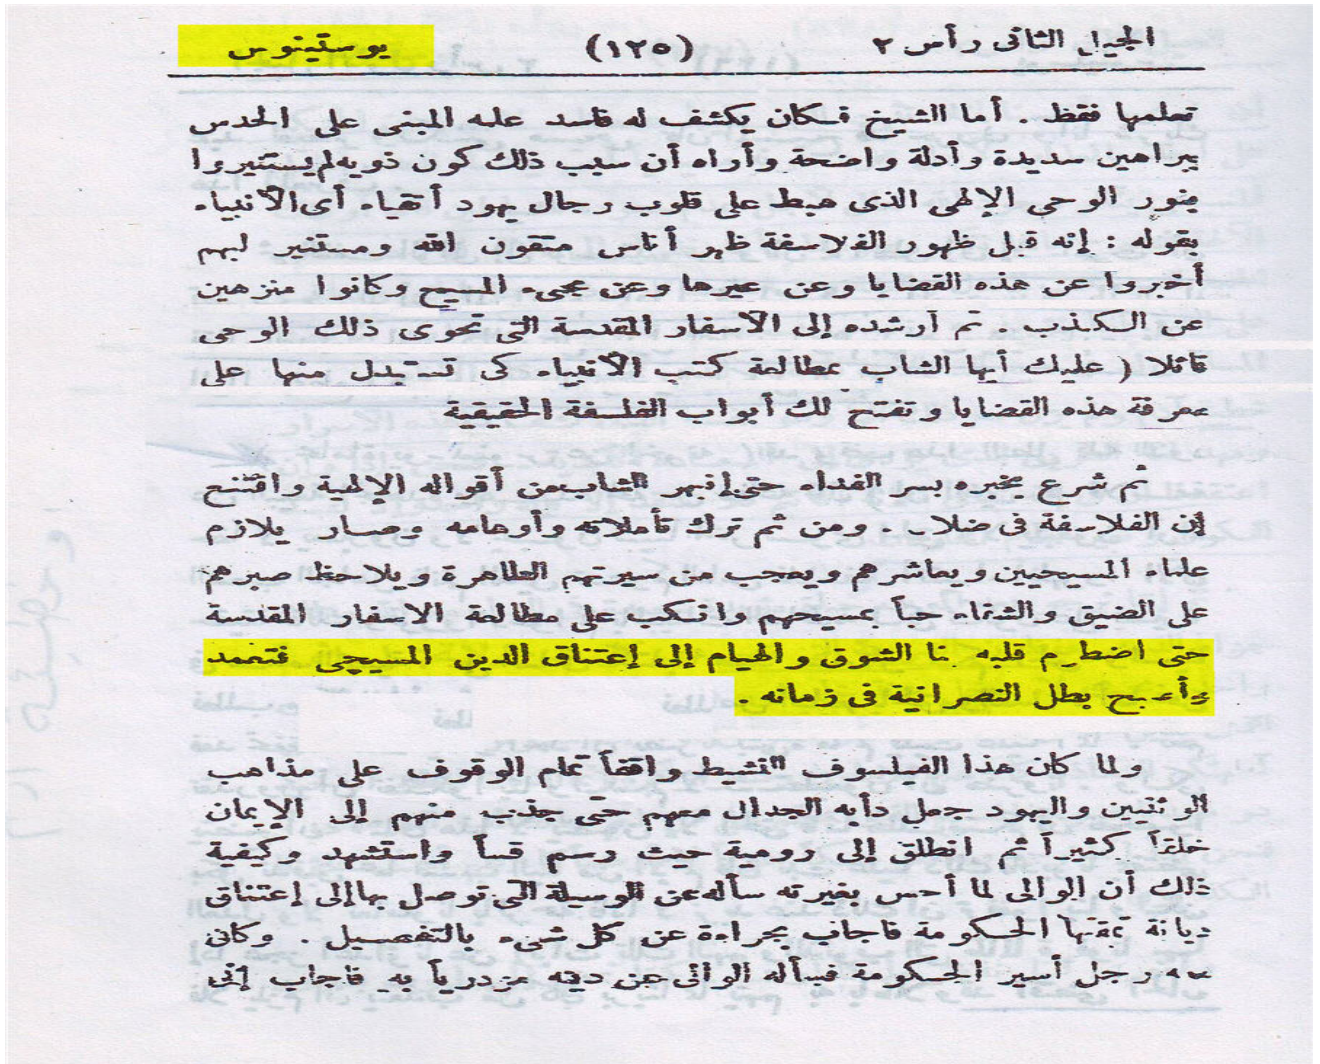 الجيل الثانى رأس ٢ (١٢٥) يوستينوس
تعلمها فقط . أما الشيخ فكان يكشف له فاسد علمه المبنى على الحدس
ببراهين سديدة وأدلة واضحة وأراه أن سبب ذلك كون ذويه لم يستنيروا
بنور الوحى الإلهى الذى هبط على قلوب رجال يهود أتقياء أى الأنبياء
بقوله : إنه قبل ظهور الفلاسفة ظهر أناس متقون الله ومستنير لبهم
أخبروا عن هذه القضايا وعن غيرها وعن مجىء المسيح وكانوا منزهين
عن الكذب . ثم أرشده إلى الأسفار المقدسة التى تحوى ذلك الوحى
قائلا ( عليك أيها الشاب بمطالعة كتب الأنبياء كى تستدل منها على
معرفة هذه القضايا وتفتح لك أبواب الفلسفة الحقيقية
ثم شرع يخبره بسر الفداء حتى إنبهر الشاب من أقواله الإلهية واقتنع
إن الفلاسفة فى ضلال . ومن ثم ترك تأملاته وأوهامه وصار يلازم
علماء المسيحيين ويعاشرهم ويعجب من سيرتهم الطاهرة ويلاحظ صبرهم
على الضيق والشقاء حباً بمسيحهم وانكب على مطالعة الاسفار المقدسة
حتى اضطرم قلبه بنا الشوق والهيام إلى إعتناق الدين المسيحى فتعمد
وأصبح بطل النصرانية فى زمانه .
ولما كان هذا الفيلسوف النشيط واقفاً تمام الوقوف على مذاهب
الوثنيين واليهود جعل دأبه الجدال معهم حتى جذب منهم إلى الإيمان
خلقاً كثيراً ثم انطلق إلى رومية حيث رسم قساً واستشهد وكيفية
ذلك أن الوالى لما أحس بغيرته سأله عن الوسيلة التى توصل بها إلى إعتناق
ديانة تمقتها الحكومة فاجاب بجراءة عن كل شىء بالتفصيل . وكان
معه رجل أسير الحكومة فسأله الوالى عن دينه مزدرياً به فاجاب إنى